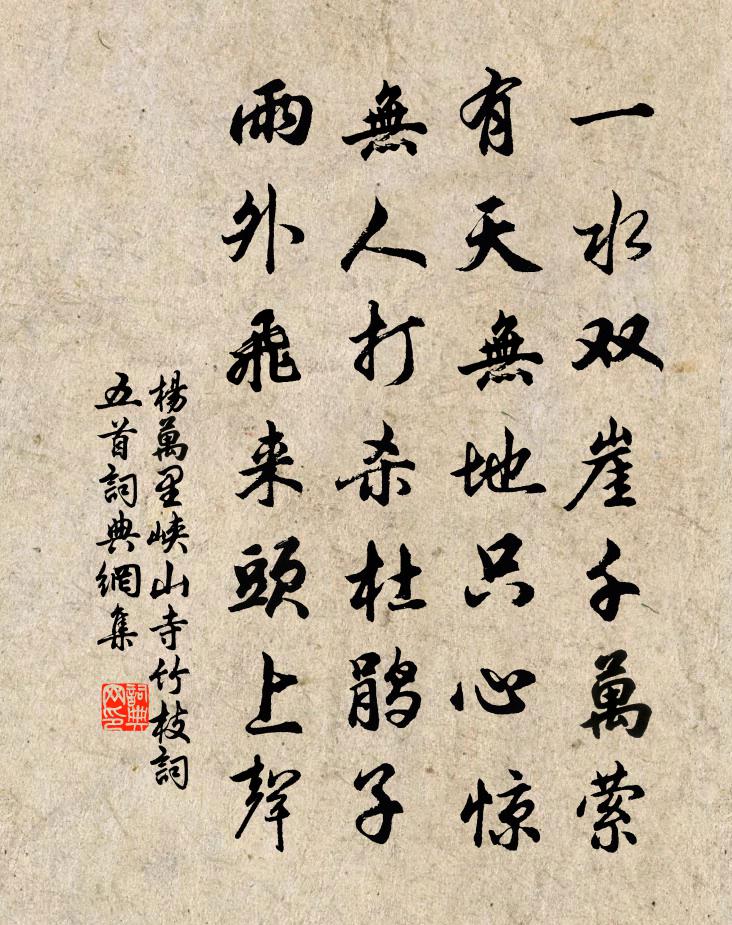 一水双崖千萬萦
有天無地只心惊
無人打杀杜鹃子
雨外飛来頭上聲
楊萬里峽山寺竹枝詞
五首詞典網集
詞典网印